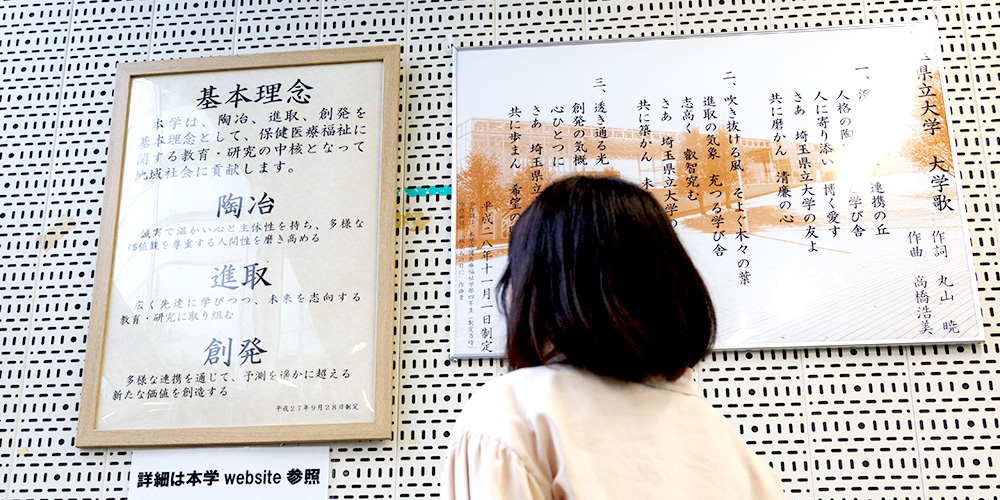 基本理念
本学は、陶冶、進取、創発を
基本理念として、保健医療福祉に
関する教育・研究の中核となって
地域社会に貢献します。
陶冶
誠実で温かい心と主体性を持ち、多様な
価値観を尊重する人間性を磨き高める
進取
広く先達に学びつつ、未来を志向する
教育・研究に取り組む
創発
多様な連携を通じて、予測を遙かに超える
新たな価値を創造する
平成27年9月28日制定
詳細は本学 website 参照
県立大学 大学歌
作詞 丸山 暁
作曲 高橋浩美
一、
連携の丘
人格の陶 学び舎
人に寄り添い 博く愛す
さあ 埼玉県立大学の友よ
共に磨かん 清廉の心
二、吹き抜ける風 そよぐ木々の葉
進取の気象 充つる学び舎
志高く 叡智究む
さあ 埼玉県立大学の
共に築かん 未
三、透き通る光
創発の気概
心ひとつに
さあ 埼玉県立
共に歩まん 希望の
平成二八年十一月一日制定